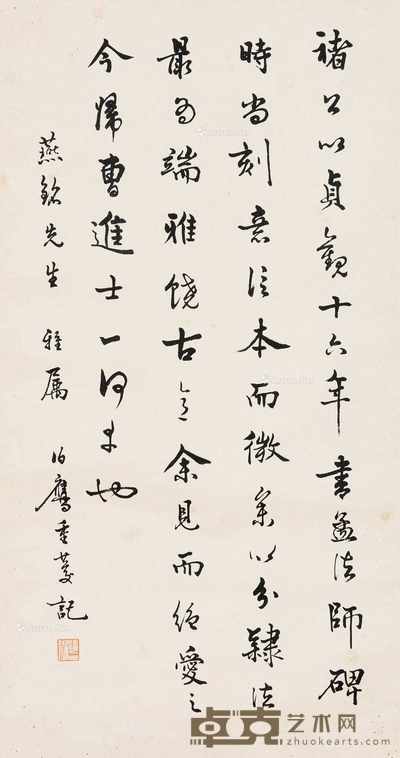 褚公以貞觀十六年書孟法師碑
時尚刻意信本而微參以分隸法
最為端雅饒古意余見而絕愛之
今歸曹進士一何幸也
燕銘先生 雅屬 伯鷹重慶記
卓克艺术网
zhuokearts.com